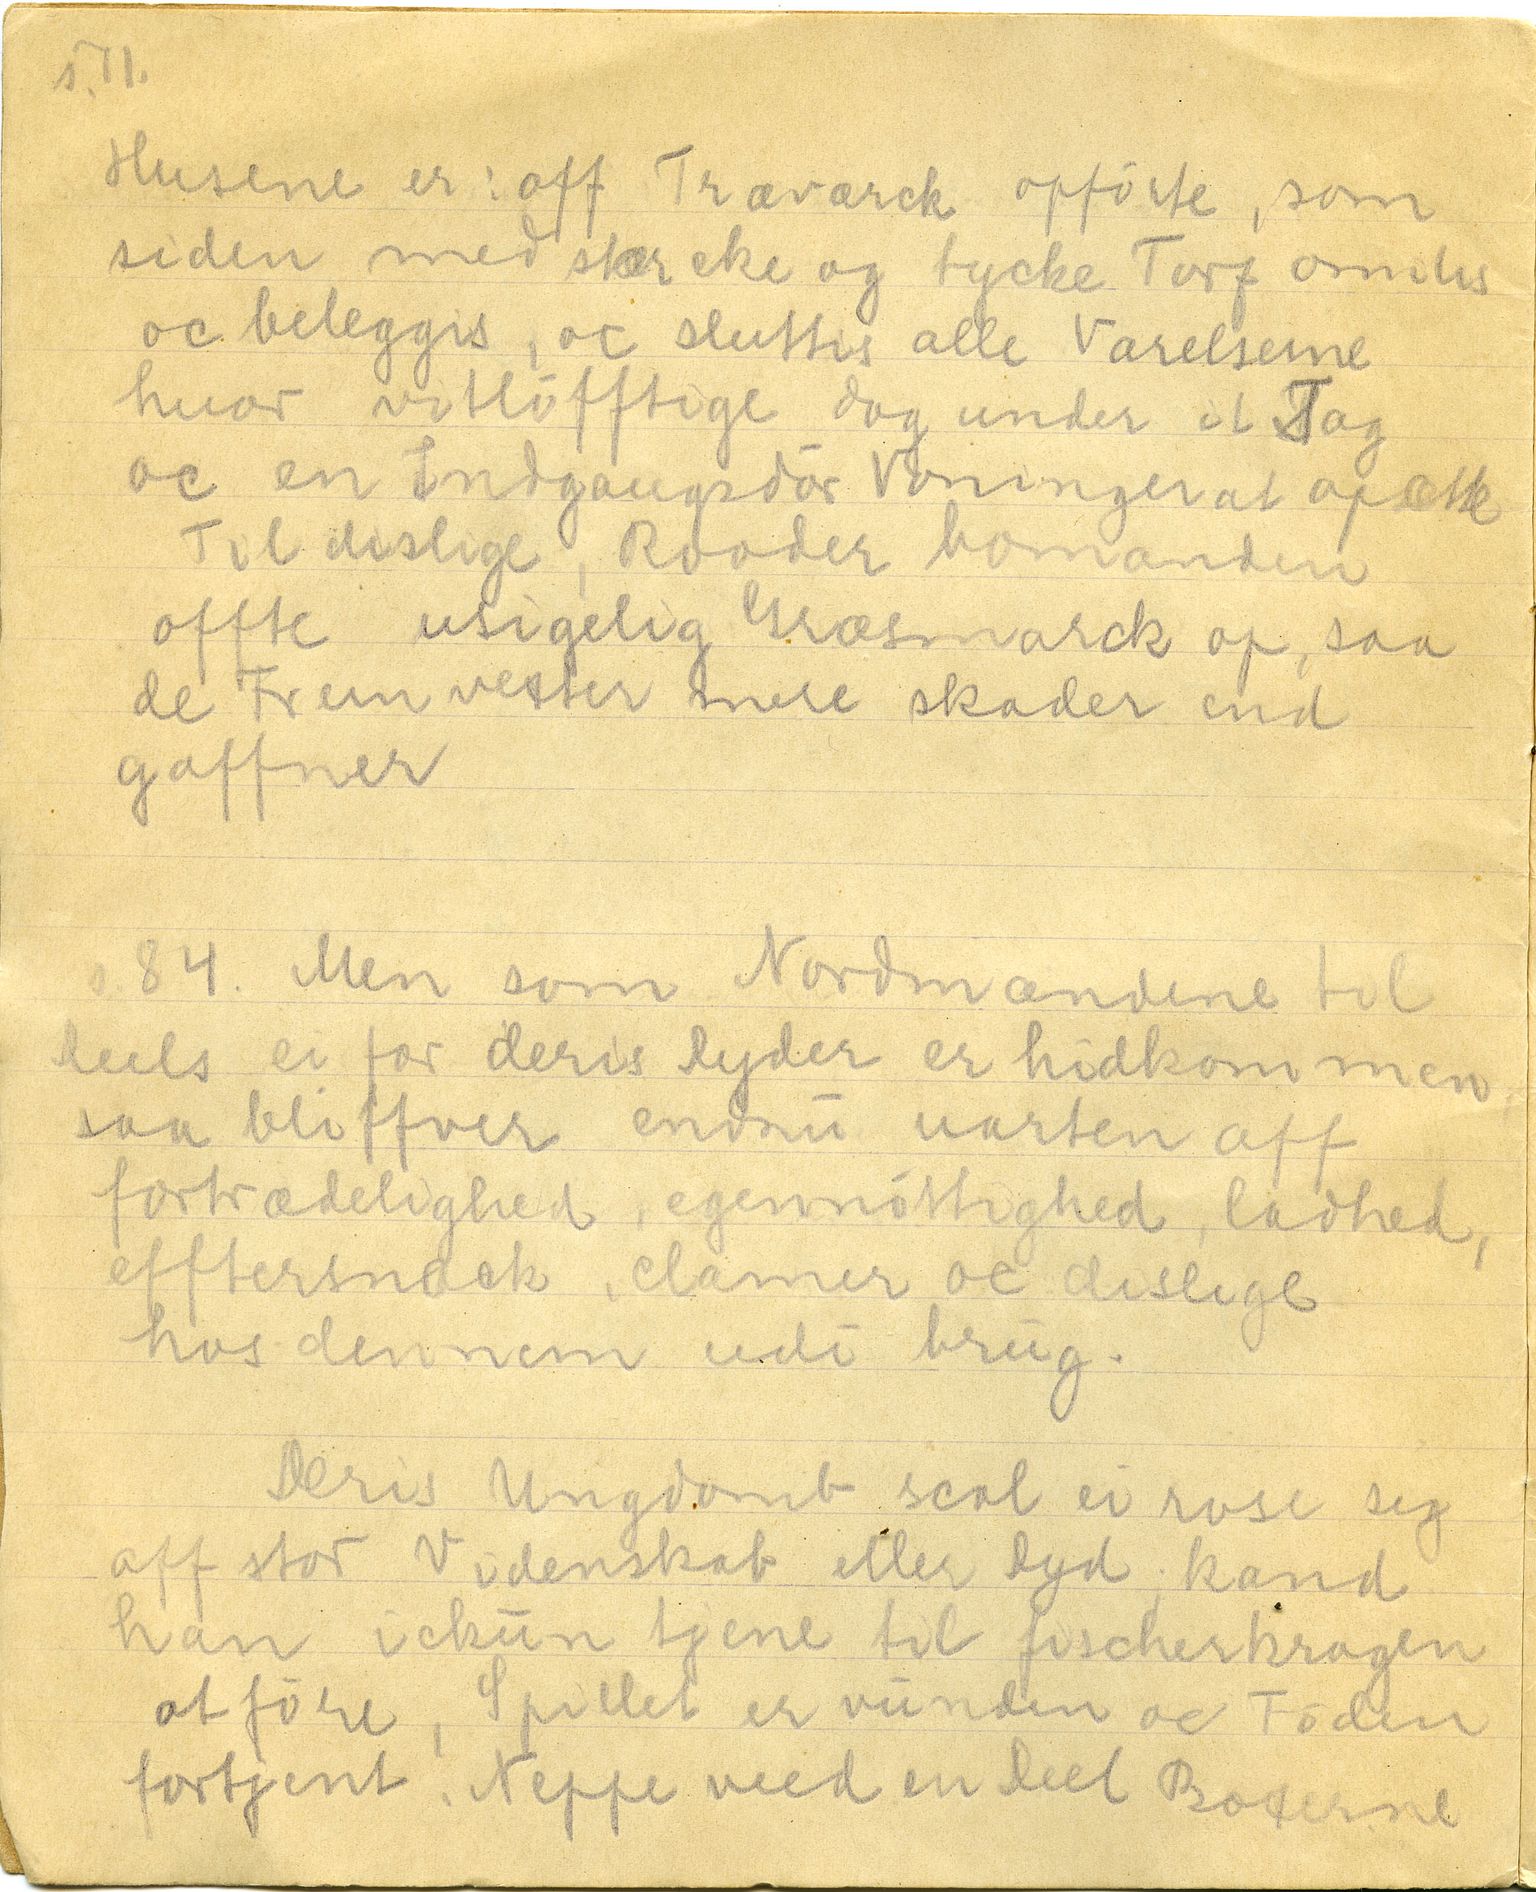 s. 71.
Husene er: aff Træværck opförte, som
siden med stærcke og tycke Torf
oc beleggis, oc sluttis alle Værelserne
huor vitlöfftige dog under it Tag
oc en Indgangsdör Voninger at opsætte
Til dislige, Rooder bomanden
offte usigelig Græsmarck op, saa
de Fremvexter mere skader end
gaffner
s. 84. Men som Nordmændene til
deels ei for deris dyder er hidkommen,
saa bliffver endnū uarten aff
fortrædelighed, egennöttighed, ladhed,
efftersnack, clamer oc deslige
hos dennem udi brūg.
Deris Ungdomb scal ei rose seg
aff stor Videnskab eller dyd, kand
han ickūn tjene til fischerkragen
at före, Spillet er vūnden oc Föden
fortjent. Neppe veed en deel Boterne